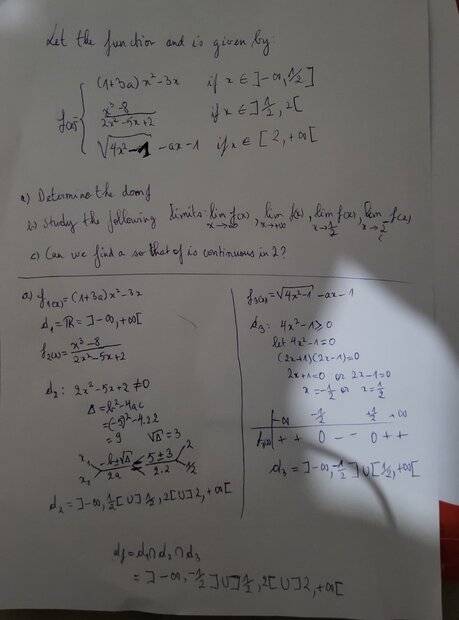 Let the function and is given by:
f(x)= { (1+3a)x²-3x if x ∈ ]-∞, 1/2]
x³-8 / 2x²-5x+2 if x ∈ ]1/2, 2[
√4x²-1 -ax-1 if x ∈ [2, +∞[
a) Determine the domf
b) study the following limits: lim x→-∞ f(x), lim x→+∞ f(x), lim x→1/2 f(x), lim x→2 f(x)
c) Can we find a so that f is continuous in 2?
a) f₁(x)=(1+3a)x²-3x
d₁=ℝ=]-∞,+∞[
f₂(x)= x³-8 / 2x²-5x+2
d₂: 2x²-5x+2≠0
Δ=b²-4ac
=(-5)²-4.2.2
=9 √Δ=3
x₁ x₂ -b±√Δ / 2a = 5±3 / 2.2 2 1/2
d₂=]-∞,1/2[∪]1/2,2[∪]2,+∞[
f₃(x)=√4x²-1 -ax-1
d₃: 4x²-1≥0
let 4x²-1=0
(2x+1)(2x-1)=0
2x+1=0 or 2x-1=0
x=-1/2 or x=1/2
-∞ -1/2 +1/2 +∞
+ + 0 - - 0 + +
d₃=]-∞,-1/2]∪[1/2,+∞[
df=d₁∩d₂∩d₃
=]-∞,-1/2]∪]1/2,2[∪]2,+∞[